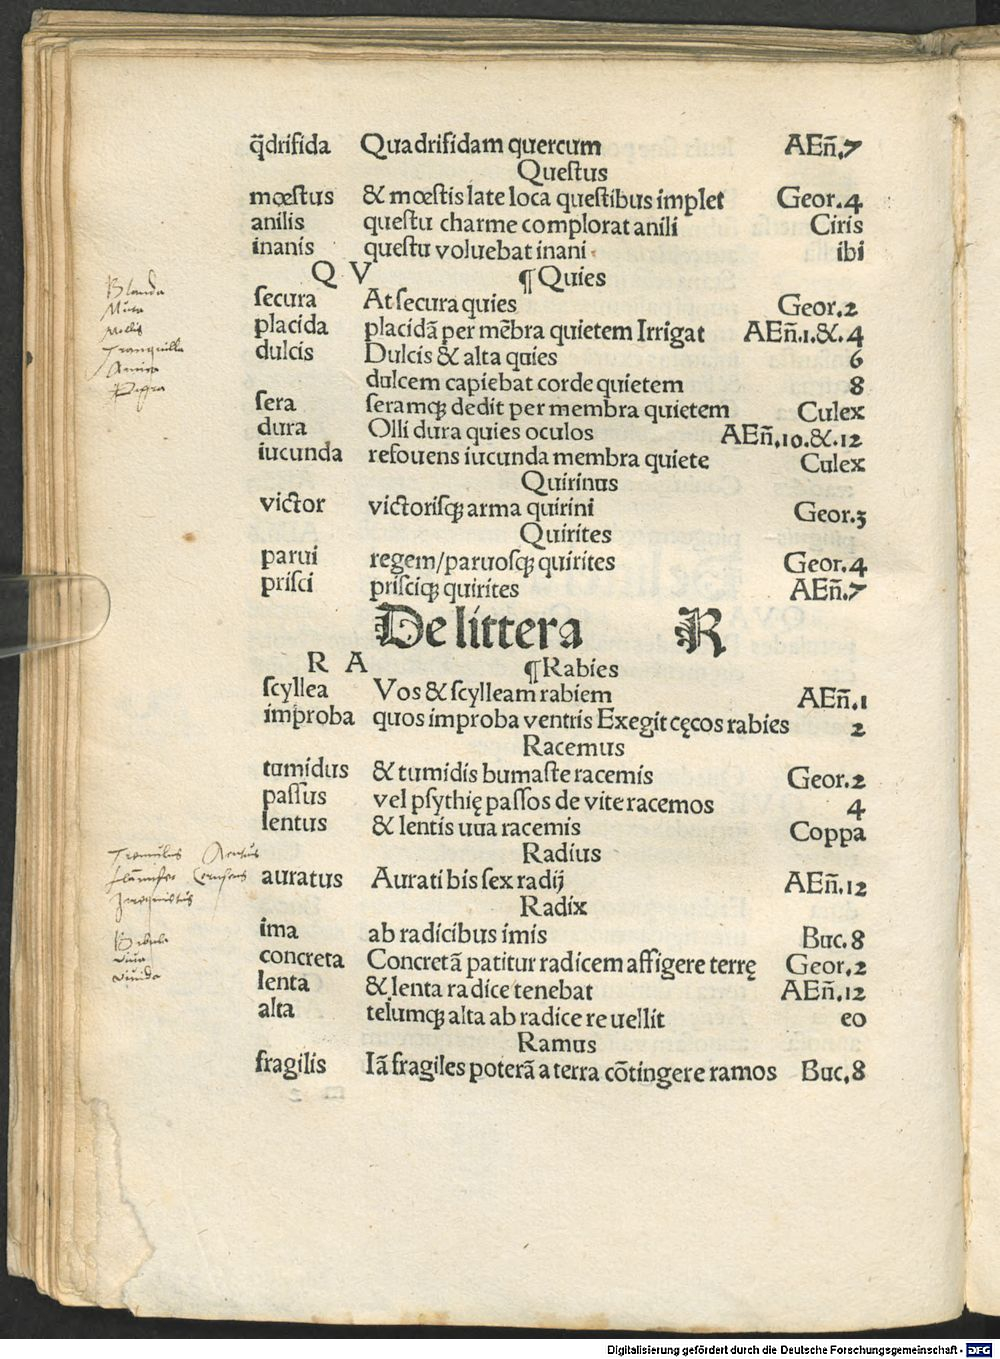 q̃drifida Quadrifidam quercum AEñ.7
Questus
mœstus & mœstis late loca questibus implet Geor.4
anilis questu charme complorat anili Ciris
inanis questu voluebat inani ibi
Q V ¶Quies
secura At secura quies Geor.2
placida placidã per mẽbra quietem Irrigat AEñ.1.&.4
dulcis Dulcis & alta quies 6
dulcem capiebat corde quietem 8
sera seramqꝫ dedit per membra quietem Culex
dura Olli dura quies oculos AEñ.10.&.12
iucunda refouens iucunda membra quiete Culex
Quirinus
victor victorisqꝫ arma quirini Geor.3
Quirites
parui regem/paruosqꝫ quirites Geor.4
prisci prisciqꝫ quirites AEñ.7
De littera R
R A ¶Rabies
scyllea Vos & scylleam rabiem AEñ.1
improba quos improba ventris Exegit cęcos rabies 2
Racemus
tumidus & tumidis bumaste racemis Geor.2
passus vel psythię passos de vite racemos 4
lentus & lentis uua racemis Coppa
Radius
auratus Aurati bis sex radij AEñ.12
Radix
ima ab radicibus imis Buc.8
concreta Concretã patitur radicem affigere terrę Geor.2
lenta & lenta radice tenebat AEñ.12
alta telumqꝫ alta ab radice reuellit eo
Ramus
fragilis Iã fragiles poterã a terra cõtingere ramos Buc.8
Blanda
Muta
Mollis
Tranquilla
Tremulus
Bibula
viua
Digitalisierung gefördert durch die Deutsche Forschungsgemeinschaft - DFG